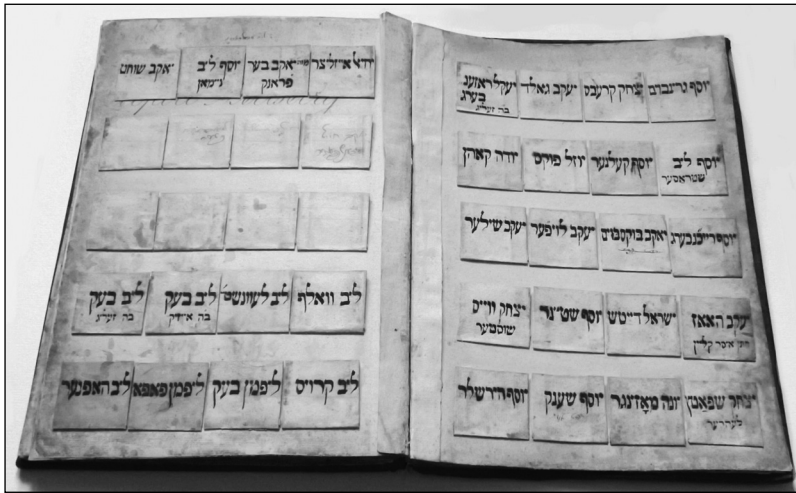 יוסף גרינבוים
יצחק קרעבס
יעקב גאלד
יעקל ראזענ
בערג
בה זעליג
יוסף ליב
שטראסער
יוסף קעלנער
יוזל פוקס
יודה קאהן
יוסף רייכנבערג
יאקב בוקסבוים
יעקב לויפער
יעקב שילער
יעקב האאז
איסר קליין
ישראל דייטש
יוסף שטיינר
יצחק ווייס
שוסטער
יצחק
לעהרער
יונה מאזינגר
יוסף שענק
יוסף הירשלר
יודא אייזליצר
יאקב בער
פראנק
יוסף ליב
ניימאן
יאקב שוחט
ליב וואלף
ליב
ליב בעק
בה אייזיק
ליב בעק
בה זעליג
ליב קרויס
ליפמן בעק
ליפמן פאפא
ליב האפפער